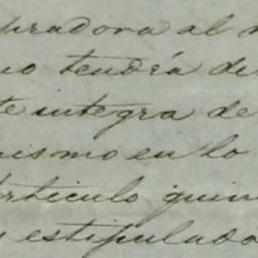 pradora al
no tendrá de
te integra de
mismo en lo
artículo quin
s estipulado